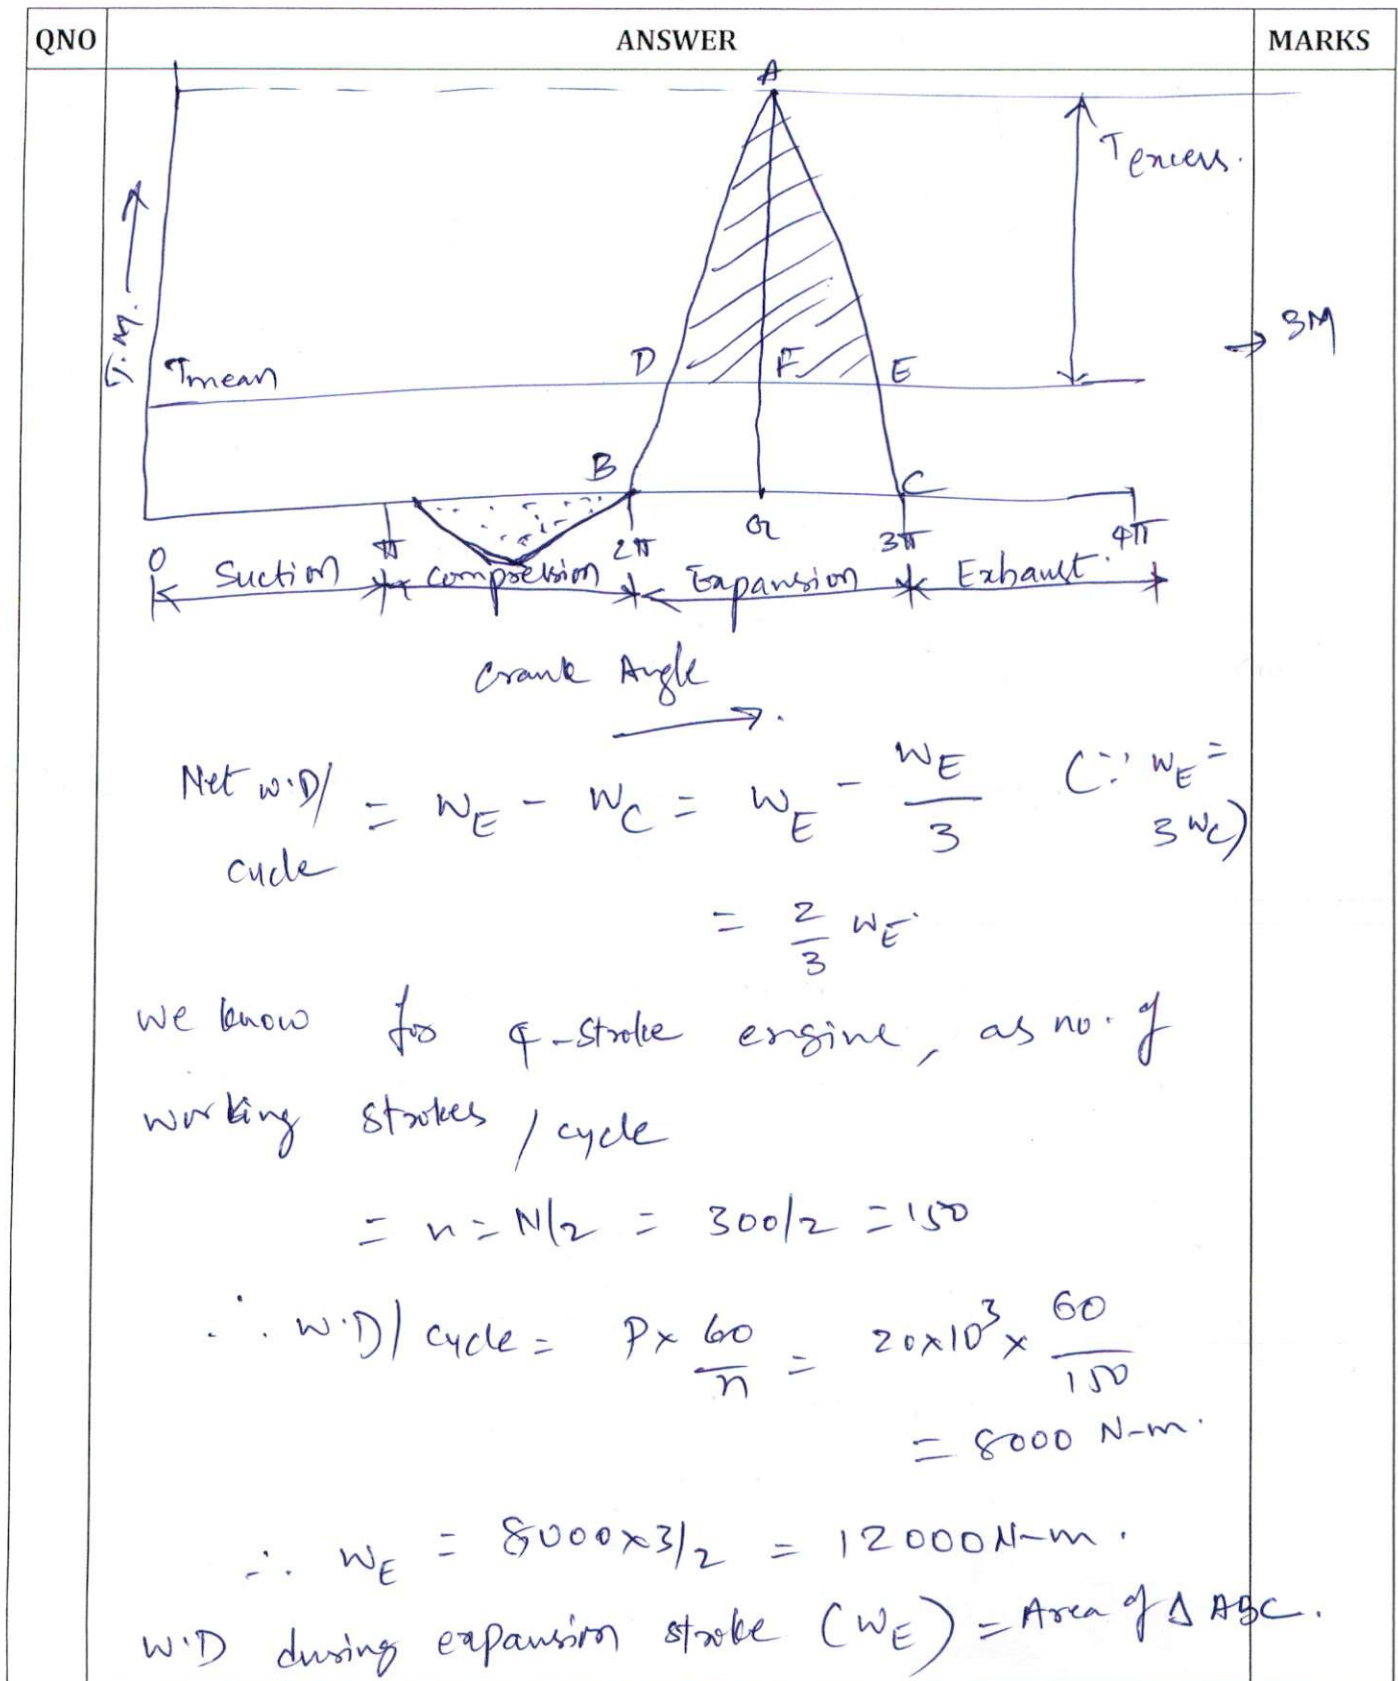 QNO ANSWER MARKS
A
T excess.
T.M.
→ 3M
Tmean D F E
B C
O π 2π G 3π 4π
Suction compression Expansion Exhaust.
Crank Angle
Net W.D/cycle = WE - WC = WE - WE/3 (∵ WE = 3WC)
= 2/3 WE.
we know for 4-stroke engine, as no. of
working strokes / cycle
= n = N/2 = 300/2 = 150
∴ W.D/cycle = P× 60/n = 20×10³ × 60/150
= 8000 N-m.
∴ WE = 8000×3/2 = 12000 N-m.
W.D during expansion stroke (WE) = Area of Δ ABC.